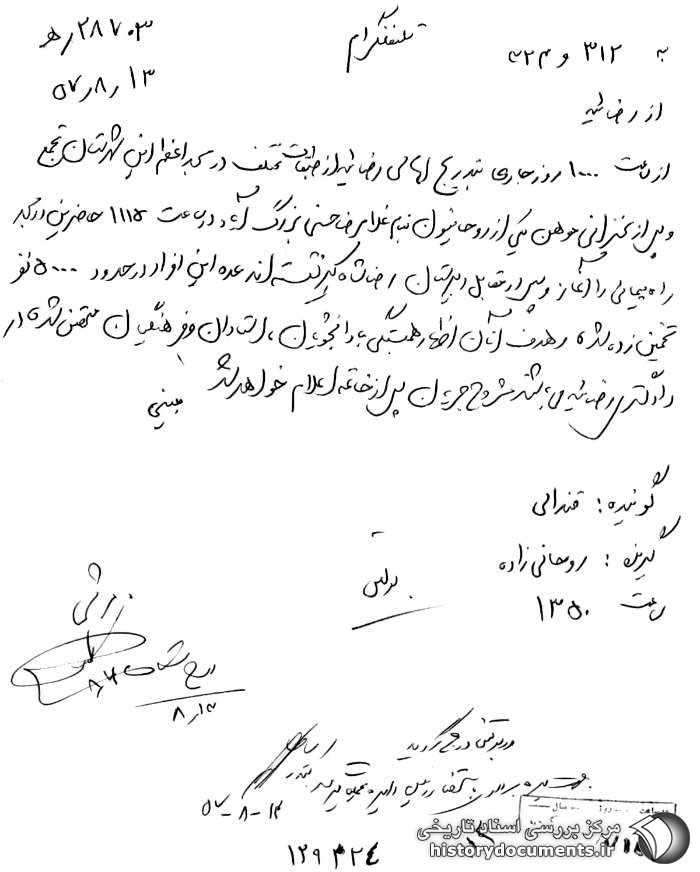 تلفنگرام
به ۳۱۲ و ۳۲۴
۲۸۷۰۳/ه
۱۳/۸/۵۷
از رضائیه
از ساعت ۱۰۰۰ روز جاری بتدریج اهالی رضائیه از طبقات مختلف در مسجد اعظم این شهرستان تجمع
و پس از سخنرانی موهن یکی از روحانیون بنام غلامرضا حسنی بزرگ آباد در ساعت ۱۱۱۵ حاضرین در مسجد
راه پیمائی را آغاز و پس از مقابل دبیرستان رضاشاه کبیر گذشته اند عده این افراد در حدود ۵۰۰۰ نفر
تخمین زده شده و هدف آنان اظهار همبستگی با دانشجویان، استادان و فرهنگیان متحصن شده در
دادگستری رضائیه می باشد مشروح جریان پس از خاتمه اعلام خواهد شد
گوینده : قندالی
گیرنده : روحانی زاده
ساعت ۱۳۵۰
بولتن
۸/۱۳
در بولتن درج گردید
۵۷-۸-۱۳
۱۲۹ ۳۲۴
مرکز بررسی اسناد تاریخی
historydocuments.ir